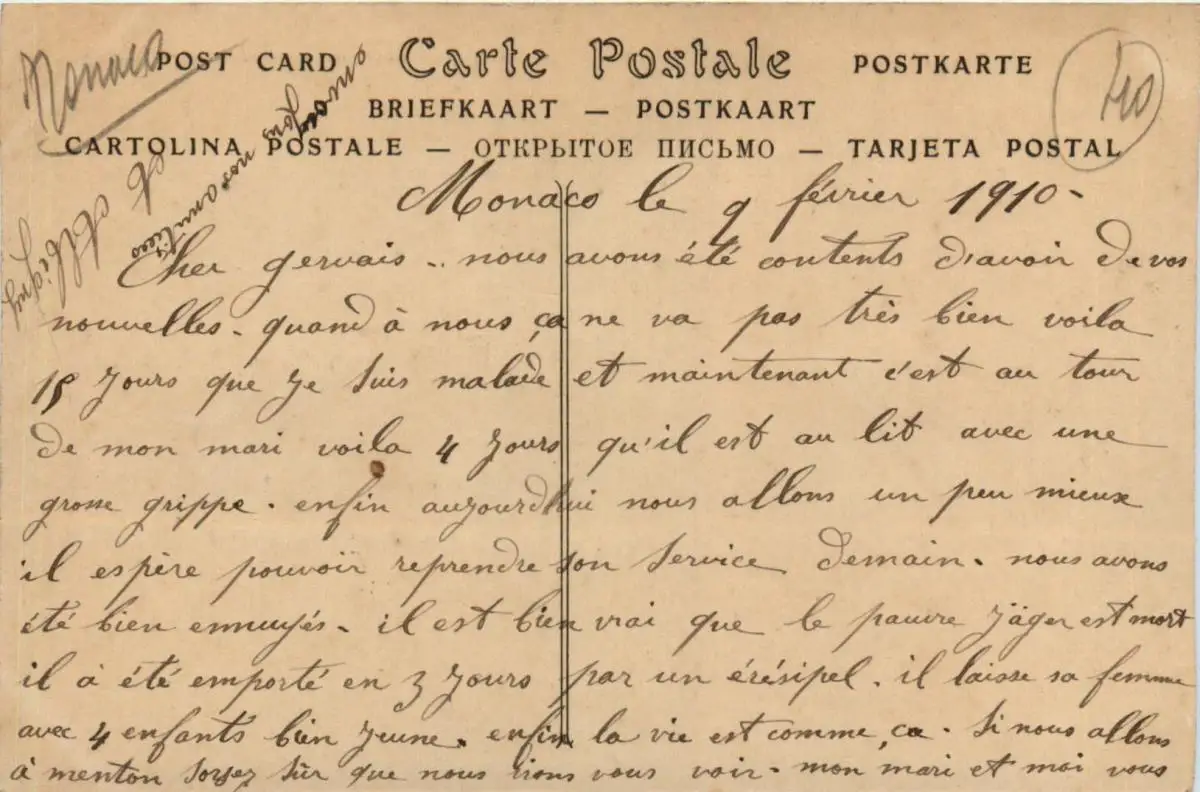 Monaco
POST CARD Carte Postale POSTKARTE
40
BRIEFKAART — POSTKAART
CARTOLINA POSTALE — ОТКРЫТОЕ ПИСЬМО — TARJETA POSTAL
Monaco le 9 février 1910-
Cher gervais.. nous avons été contents d'avoir de vos
nouvelles. quand à nous ça ne va pas très bien voila
15 Jours que Je suis malade et maintenant c'est au tour
de mon mari voila 4 Jours qu'il est au lit avec une
grosse grippe. enfin aujourd'hui nous allons un peu mieux
il espère pouvoir reprendre son service demain. nous avons
été bien ennuyés. il est bien vrai que le pauvre Jäger est mort
il à été emporté en 3 Jours par un érésipel. il laisse sa femme
avec 4 enfants bien Jeune. enfin la vie est comme ça. Si nous allons
à menton soyez sûr que nous irons vous voir. mon mari et moi vous
envoie
tous nos amitiés